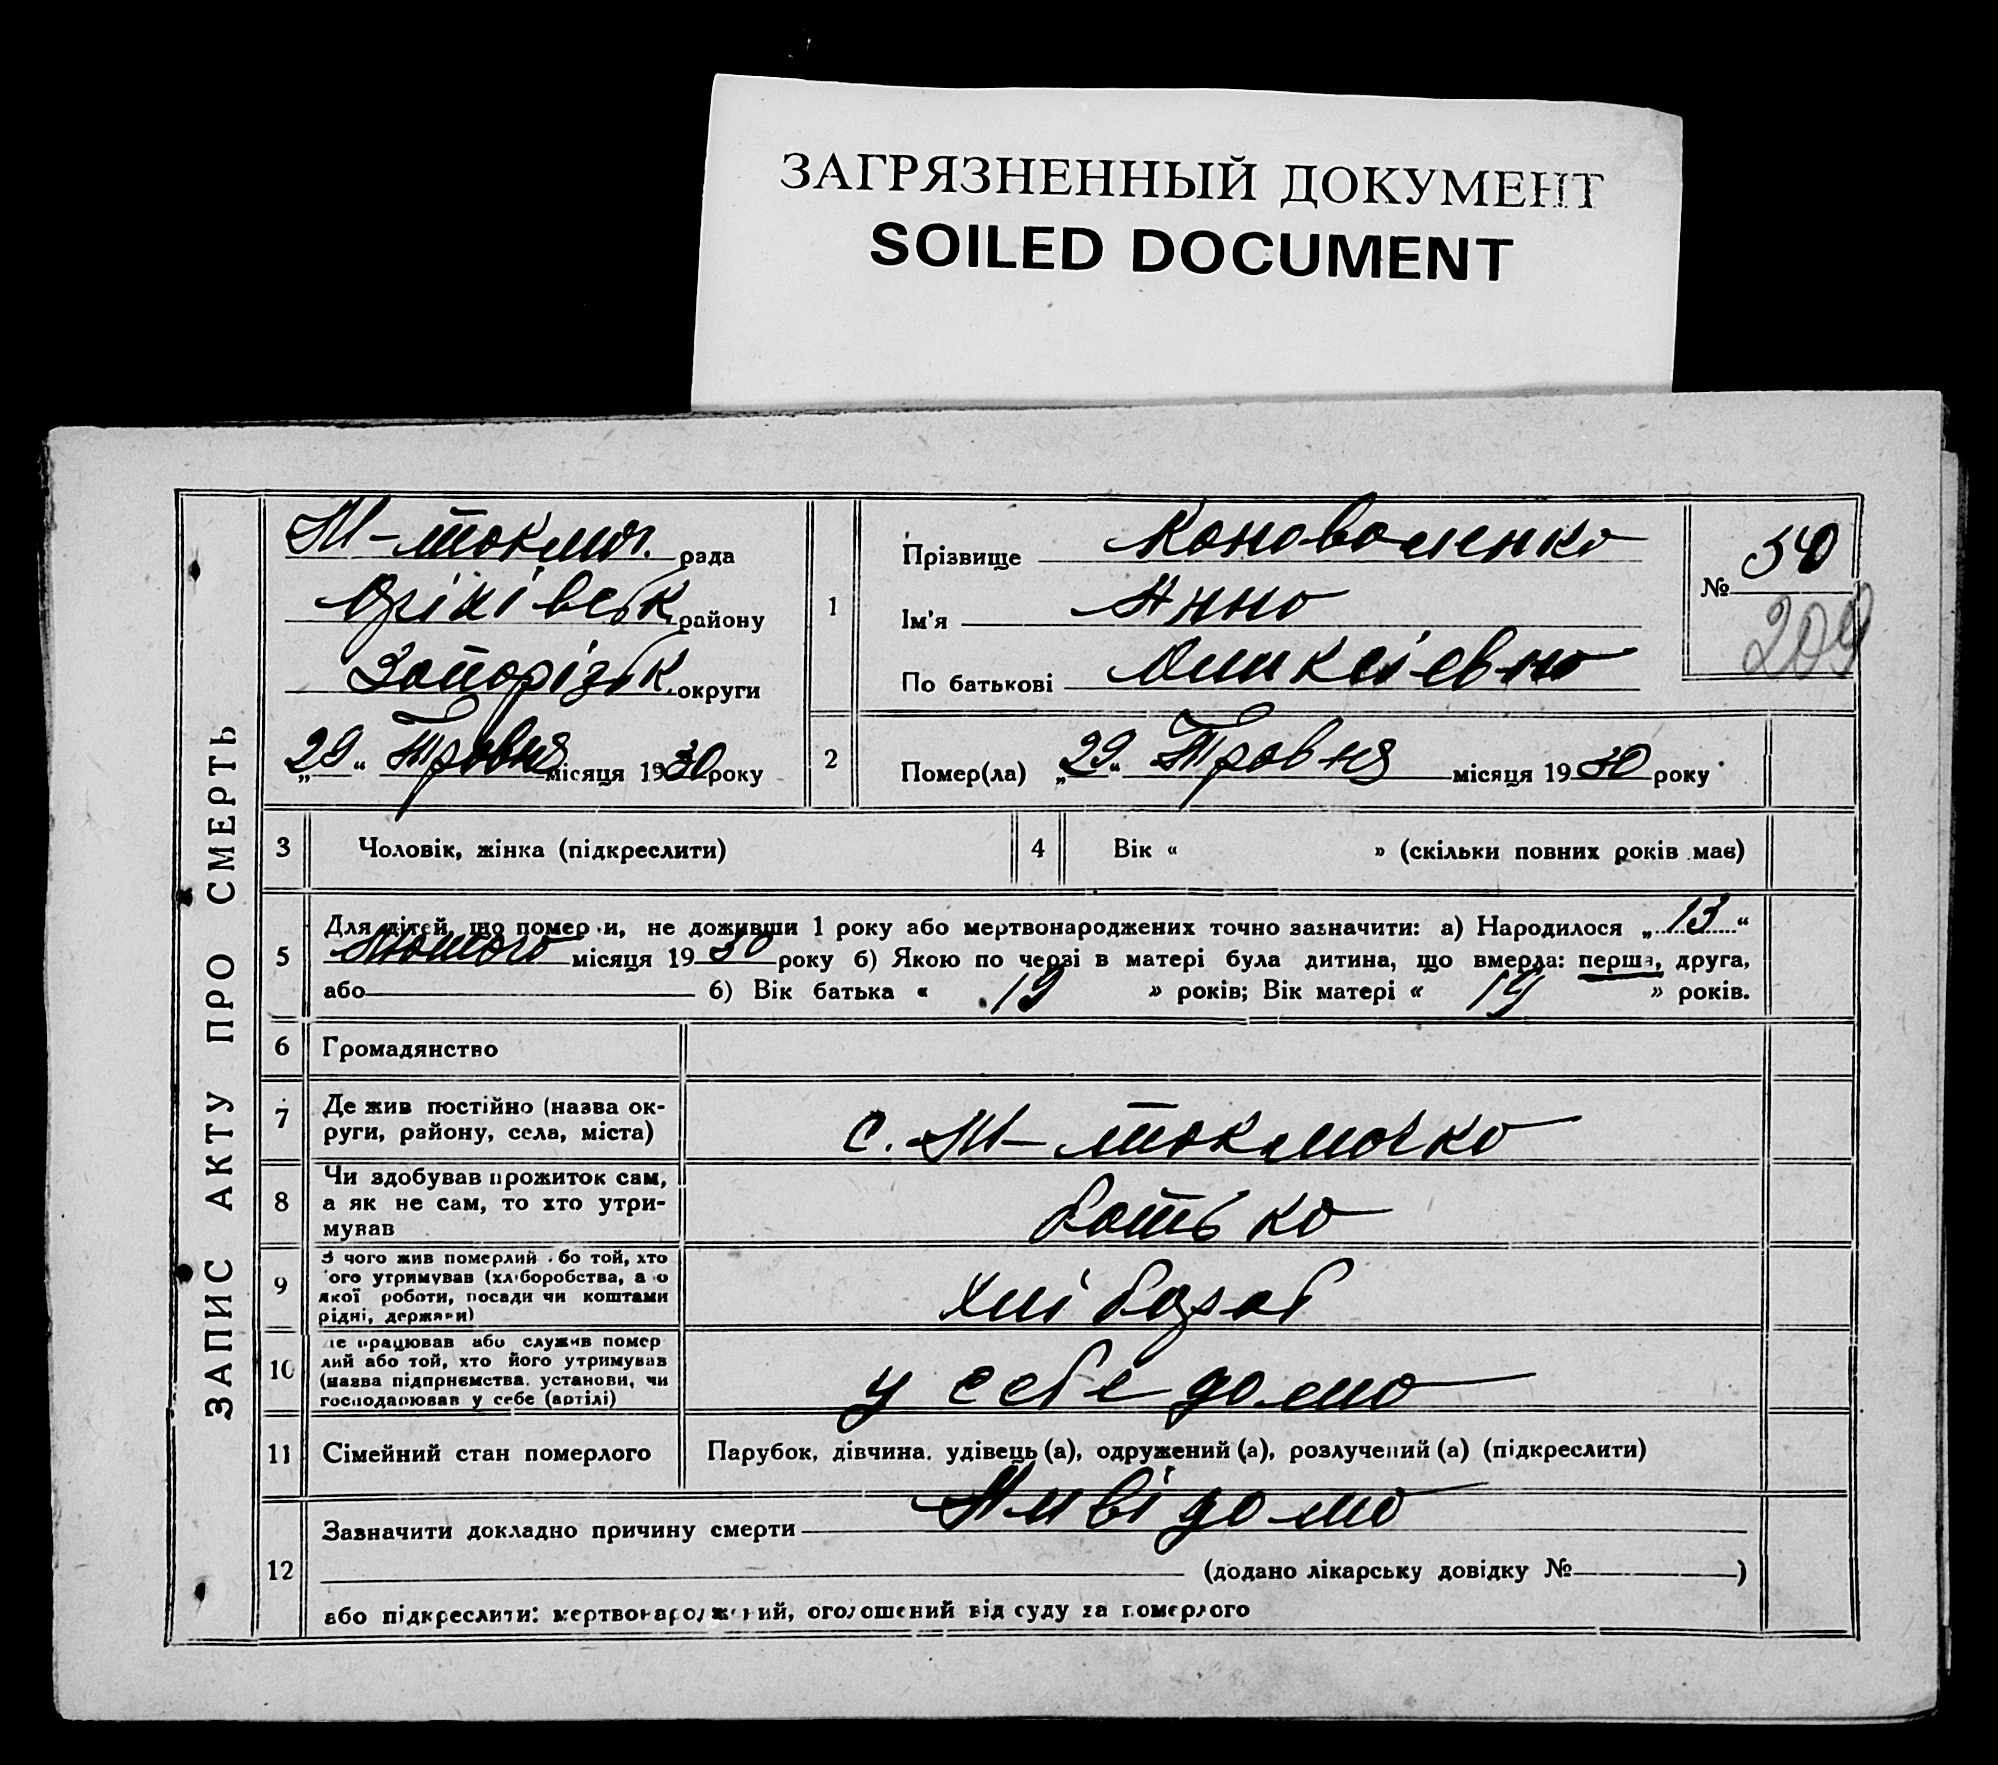 ЗАГРЯЗНЕННЫЙ ДОКУМЕНТ
SOILED DOCUMENT
ЗАПИС АКТУ ПРО СМЕРТЬ
М-токмач. рада
Оріхівськ району
Запорізьк округи
„29“ Травня місяця 1930 року
1
Прізвище Коноваленко
Ім'я Анна
По батькові
№ 50
209
2
Помер(ла) „29“ Травня місяця 1930 року
3 Чоловік, жінка (підкреслити)
4 Вік « » (скільки повних років має)
5
Для дітей, що померли, не доживши 1 року або мертвонароджених точно зазначити: а) Народилося „13“
Лютого місяця 1930 року б) Якою по черзі в матері була дитина, що вмерла: перша, друга,
або б) Вік батька « 19 » років; Вік матері « 19 » років.
6 Громадянство
7
Де жив постійно (назва ок-
руги, району, села, міста)
с. М-токмачка
8
Чи здобував прожиток сам,
а як не сам, то хто утри-
мував
батько
9
З чого жив померлий або той, хто
його утримував (хліборобства, або
якої роботи, посади чи коштами
рідні, держави)
хлібороб
10
Де працював або служив помер
лий або той, хто його утримував
(назва підприємства, установи, чи
господарював у себе (артілі)
у себе дома
11 Сімейний стан померлого
Парубок, дівчина, удівець (а), одружений (а), розлучений (а) (підкреслити)
12
Зазначити докладно причину смерти Нивідомо
(додано лікарську довідку № )
або підкреслити: мертвонароджений, оголошений від суду за померлого